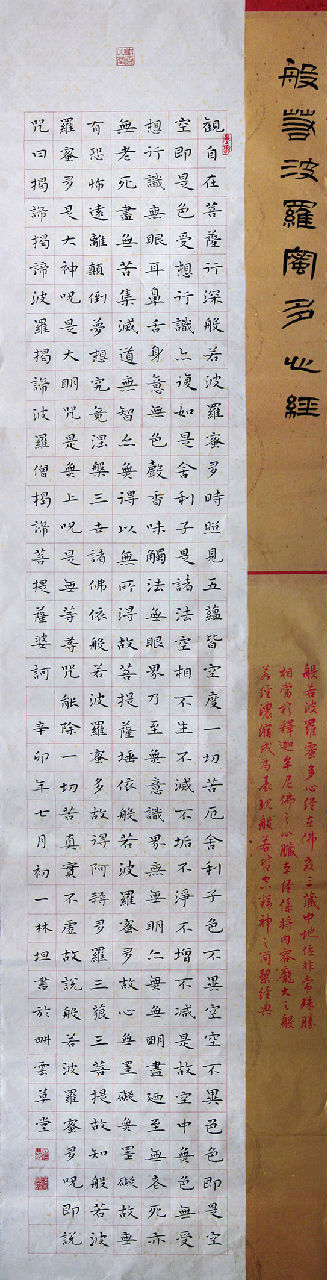 般若波羅蜜多心經
般若波羅蜜多心經在佛教三藏中地位非常殊勝
相當於釋迦牟尼佛之心臟本經係將內容龐大之般
若經濃縮成為表現般若皆空精神之簡潔經典
觀自在菩薩行深般若波羅蜜多時照見五蘊皆空度一切苦厄舍利子色不異空空不異色色即是空
空即是色受想行識亦復如是舍利子是諸法空相不生不滅不垢不淨不增不減是故空中無色無受
想行識無眼耳鼻舌身意無色聲香味觸法無眼界乃至無意識界無無明亦無無明盡廼至無老死亦
無老死盡無苦集滅道無智亦無得以無所得故菩提薩埵依般若波羅蜜多故心無罣礙無罣礙故無
有恐怖遠離顛倒夢想究竟涅槃三世諸佛依般若波羅蜜多故得阿耨多羅三藐三菩提故知般若波
羅蜜多是大神咒是大明咒是無上咒是無等等咒能除一切苦真實不虛故說般若波羅蜜多咒即說
咒曰揭諦揭諦波羅揭諦波羅僧揭諦菩提薩婆訶辛卯年七月初一林坦書於雲草堂